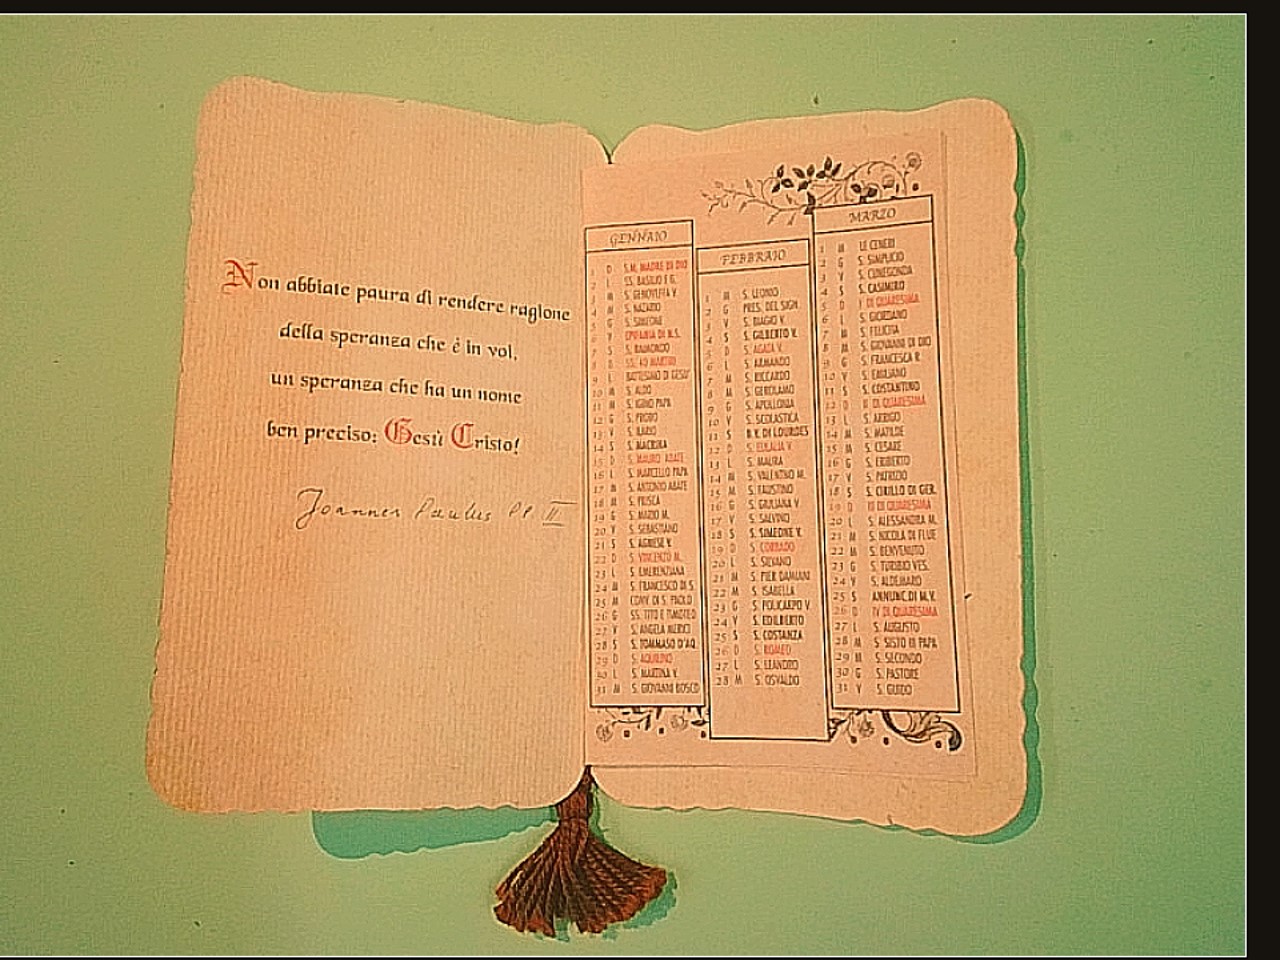 Non abbiate paura di rendere ragione
della speranza che è in voi,
un speranza che ha un nome
ben preciso: Gesù Cristo!
Joannes Paulus PP. II
GENNAIO
1 D S.M. MADRE DI DIO
2 L SS. BASILIO E G.
3 M S. GENOVEFFA V.
4 M S. NAZARIO
5 G S. SIMEONE
6 V EPIFANIA DI N.S.
7 S S. RAIMONDO
8 D SS. 40 MARTIRI
9 L BATTESIMO DI GESU'
10 M S. ALDO
11 M S. IGINO PAPA
12 G S. PROBO
13 V S. ILARIO
14 S S. MACRINA
15 D S. MAURO ABATE
16 L S. MARCELLO PAPA
17 M S. ANTONIO ABATE
18 M S. PRISCA
19 G S. MARIO M.
20 V S. SEBASTIANO
21 S S. AGNESE V.
22 D S. VINCENZO M.
23 L S. EMERENZIANA
24 M S. FRANCESCO DI S.
25 M CONV. DI S. PAOLO
26 G SS. TITO E TIMOTEO
27 V S. ANGELA MERICI
28 S S. TOMMASO D'AQ.
29 D S. AQUILINO
30 L S. MARTINA V.
31 M S. GIOVANNI BOSCO
FEBBRAIO
1 M S. LEONIO
2 G PRES. DEL SIGN.
3 V S. BIAGIO V.
4 S S. GILBERTO V.
5 D S. AGATA V.
6 L S. ARMANDO
7 M S. RICCARDO
8 M S. GEROLAMO
9 G S. APOLLONIA
10 V S. SCOLASTICA
11 S B.V. DI LOURDES
12 D S. EULALIA V.
13 L S. MAURA
14 M S. VALENTINO M.
15 M S. FAUSTINO
16 G S. GIULIANA V.
17 V S. SALVINO
18 S S. SIMEONE V.
19 D S. CORRADO
20 L S. SILVANO
21 M S. PIER DAMIANI
22 M S. ISABELLA
23 G S. POLICARPO V.
24 V S. EDILBERTO
25 S S. COSTANZA
26 D S. ROMEO
27 L S. LEANDRO
28 M S. OSVALDO
MARZO
1 M LE CENERI
2 G S. SIMPLICIO
3 V S. CUNEGONDA
4 S S. CASIMIRO
5 D I DI QUARESIMA
6 L S. GIORDANO
7 M S. FELICITA
8 M S. GIOVANNI DI DIO
9 G S. FRANCESCA R.
10 V S. EMILIANO
11 S S. COSTANTINO
12 D II DI QUARESIMA
13 L S. ARRIGO
14 M S. MATILDE
15 M S. CESARE
16 G S. ERIBERTO
17 V S. PATRIZIO
18 S S. CIRILLO DI GER.
19 D III DI QUARESIMA
20 L S. ALESSANDRA M.
21 M S. NICOLA DI FLUE
22 M S. BENVENUTO
23 G S. TURIBIO VES.
24 V S. ALDEMARO
25 S ANNUNC. DI M.V.
26 D IV DI QUARESIMA
27 L S. AUGUSTO
28 M S. SISTO III PAPA
29 M S. SECONDO
30 G S. PASTORE
31 V S. GUIDO